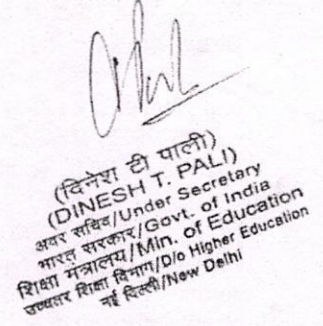 (दिनेश टी पाली)
(DINESH T. PALI)
अवर सचिव/Under Secretary
भारत सरकार/Govt. of India
शिक्षा मंत्रालय/Min. of Education
उच्चतर शिक्षा विभाग/D/o Higher Education
नई दिल्ली/New Delhi